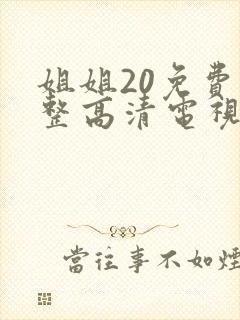 姐姐20免費
整高清電視
當往事不如煙